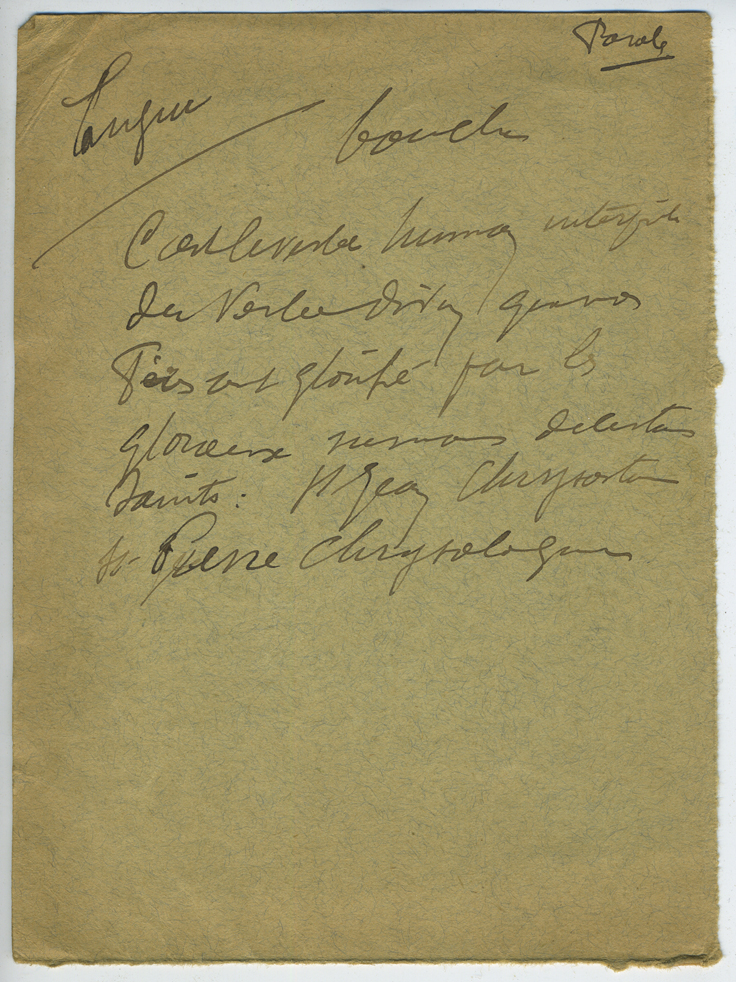 Parole
Langue
bouche
C'est le verbe humain interprète
du Verbe divin que nos
Pères ont glorifié par les
glorieux surnoms de certains
Saints : St Jean Chrysostome
St Pierre Chrysologue